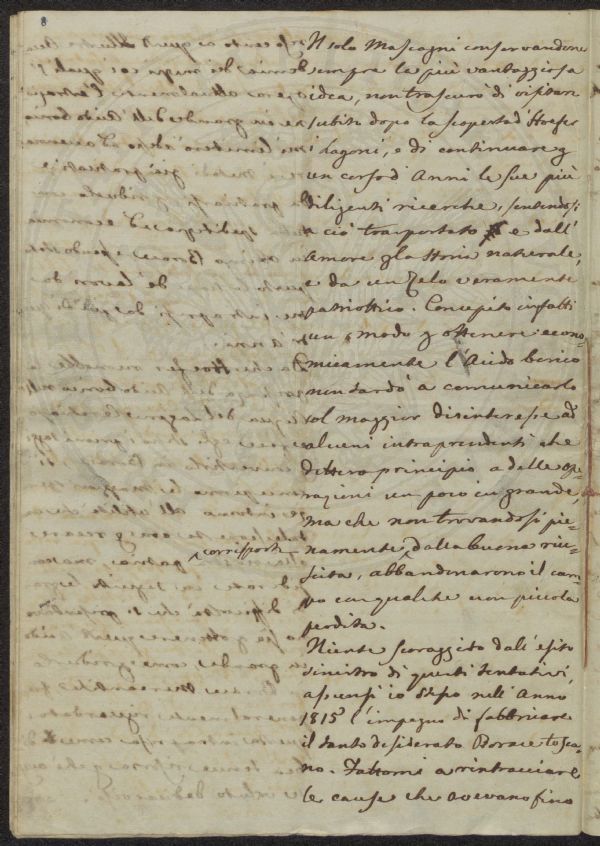 8
Il solo Mascagni conservandone
sempre la più vantaggiosa
idea, non trascurò di visitare
subito dopo la scoperta d'Hoefer
i Lagoni, e di continuare p
un corso d'Anni le sue più
diligenti ricerche, sentendosi
a ciò trasportato e dall'
Amore p la Storia naturale,
e da un Zelo veramente
patriottico. Concepito infatti
un modo p ottenere econo-
micamente l'Acido borico
non tardò a comunicarlo
col maggior disinteresse ad
alcuni intraprendenti che
dettero principio a delle ope-
razioni un poco in grande,
ma che non trovandosi pie-
namente corrisposti dalla buona riu-
scita, abbandonarono il cam-
po con qualche non piccola
perdita.
Niente scoraggito dall'esito
sinistro di questi tentativi,
assunsi io stesso nell'Anno
1815 l'impegno di fabbricare
il tanto desiderato Borace tosca-
no. Fattomi a rintracciare
le cause che avevano fino